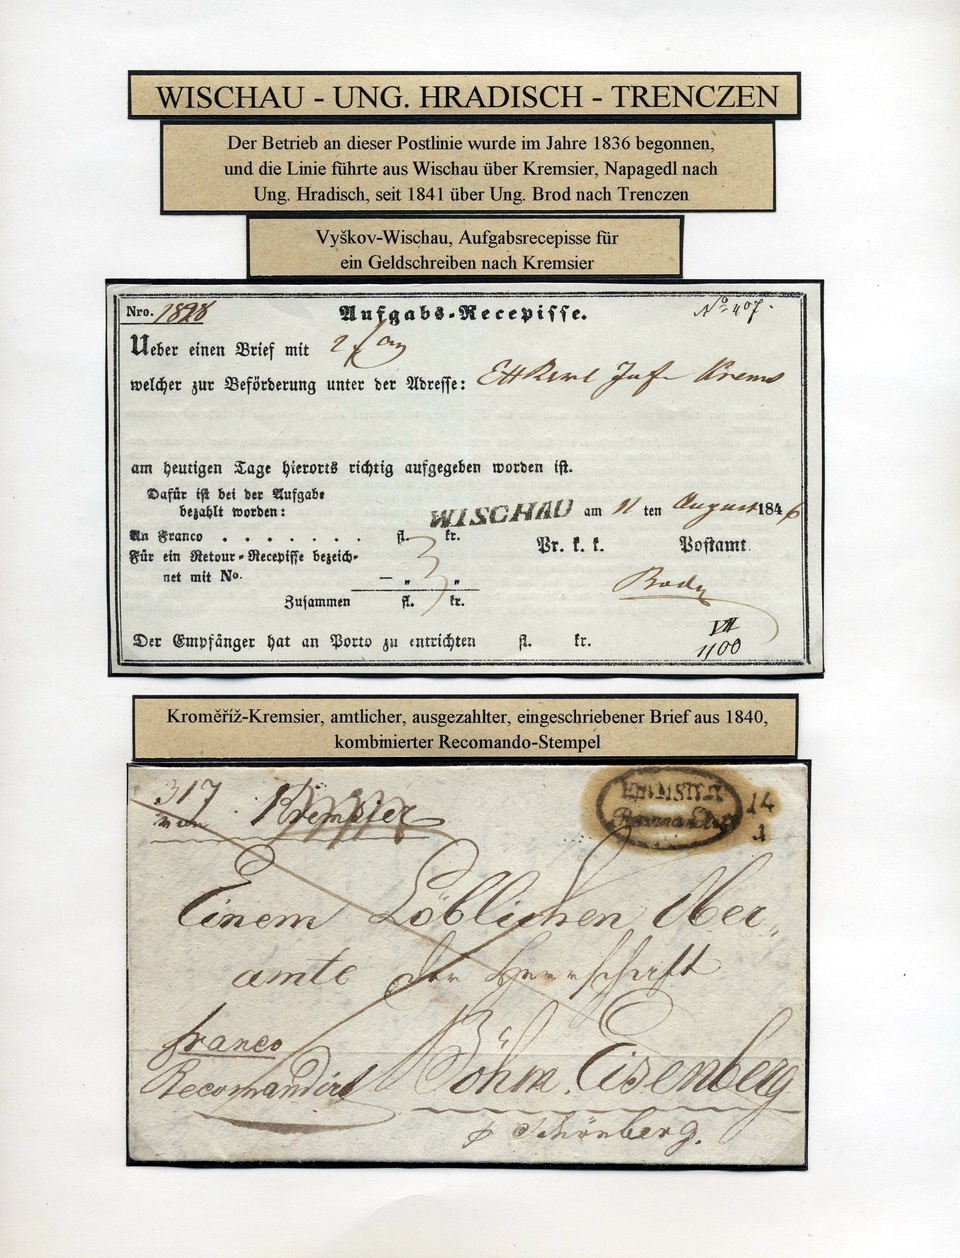 WISCHAU - UNG. HRADISCH - TRENCZEN
Der Betrieb an dieser Postlinie wurde im Jahre 1836 begonnen,
und die Linie führte aus Wischau über Kremsier, Napagedl nach
Ung. Hradisch, seit 1841 über Ung. Brod nach Trenczen
Vyškov-Wischau, Aufgabsrecepisse für
ein Geldschreiben nach Kremsier
Nro. 1828 Aufgabs-Recepisse. No. 407.
Ueber einen Brief mit
welcher zur Beförderung unter der Adresse: Krems
am heutigen Tage hierorts richtig aufgegeben worden ist.
Dafür ist bei der Aufgabe
bezahlt worden:
WISCHAU am 11 ten August 1846
An Franco . . . . . . . fl. kr.
Pr. k. k. Postamt.
Für ein Retour-Recepisse bezeich-
net mit No. — " 3 "
Zusammen fl. kr.
Der Empfänger hat an Porto zu entrichten fl. kr.
VII
1100
Kroměříž-Kremsier, amtlicher, ausgezahlter, eingeschriebener Brief aus 1840,
kombinierter Recomando-Stempel
317 Kremsier
KREMSIER
Recomandirt
14
1
Einem Löblichen Ober-
amte der Herrschaft
franco
Recomandirt Böhm. Eisenberg
p Schönberg.